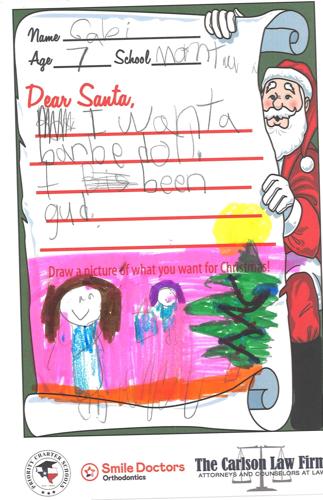 Name Gabi
Age 7 School
Dear Santa,
I wanta
barbe doll.
I been
gud.
Draw a picture of what you want for Christmas!
PRIORITY CHARTER SCHOOLS
Smile Doctors
Orthodontics
The Carlson Law Firm
ATTORNEYS AND COUNSELORS AT LAW